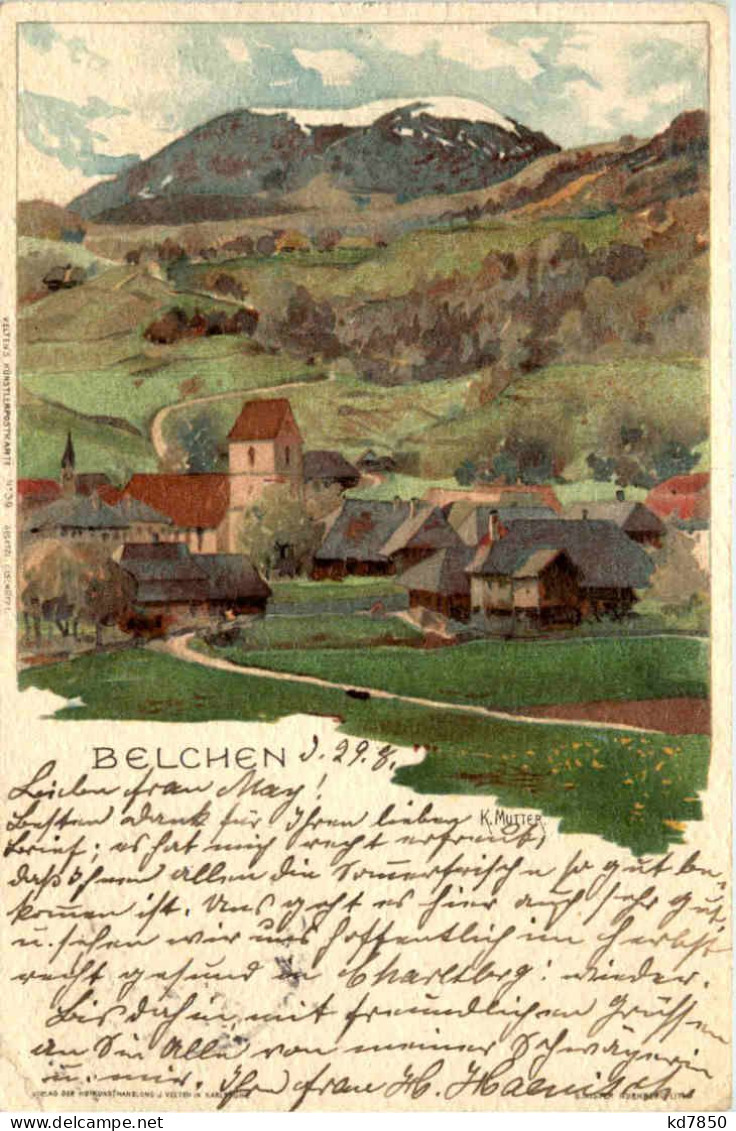 VELTEN'S KÜNSTLERPOSTKARTE No 39
BELCHEN d. 29. 8.
K. MUTTER
Liebe Frau May!
Besten Dank für Ihren lieben
Brief; es hat mich recht erfreut,
daß Ihnen allen die Sommerfrische so gut be-
kommen ist. Uns geht es hier auch sehr gut,
u. sehen wir uns hoffentlich im Herbst
recht gesund in Charltbg: wieder.
Bis dahin mit freundlichen Grüßen
an Sie Alle von meiner Schwägerin
u. mir. Ihre Frau H. Haenisch.
VERLAG DER HOFKUNSTHANDLUNG J. VELTEN IN KARLSRUHE
kd7850